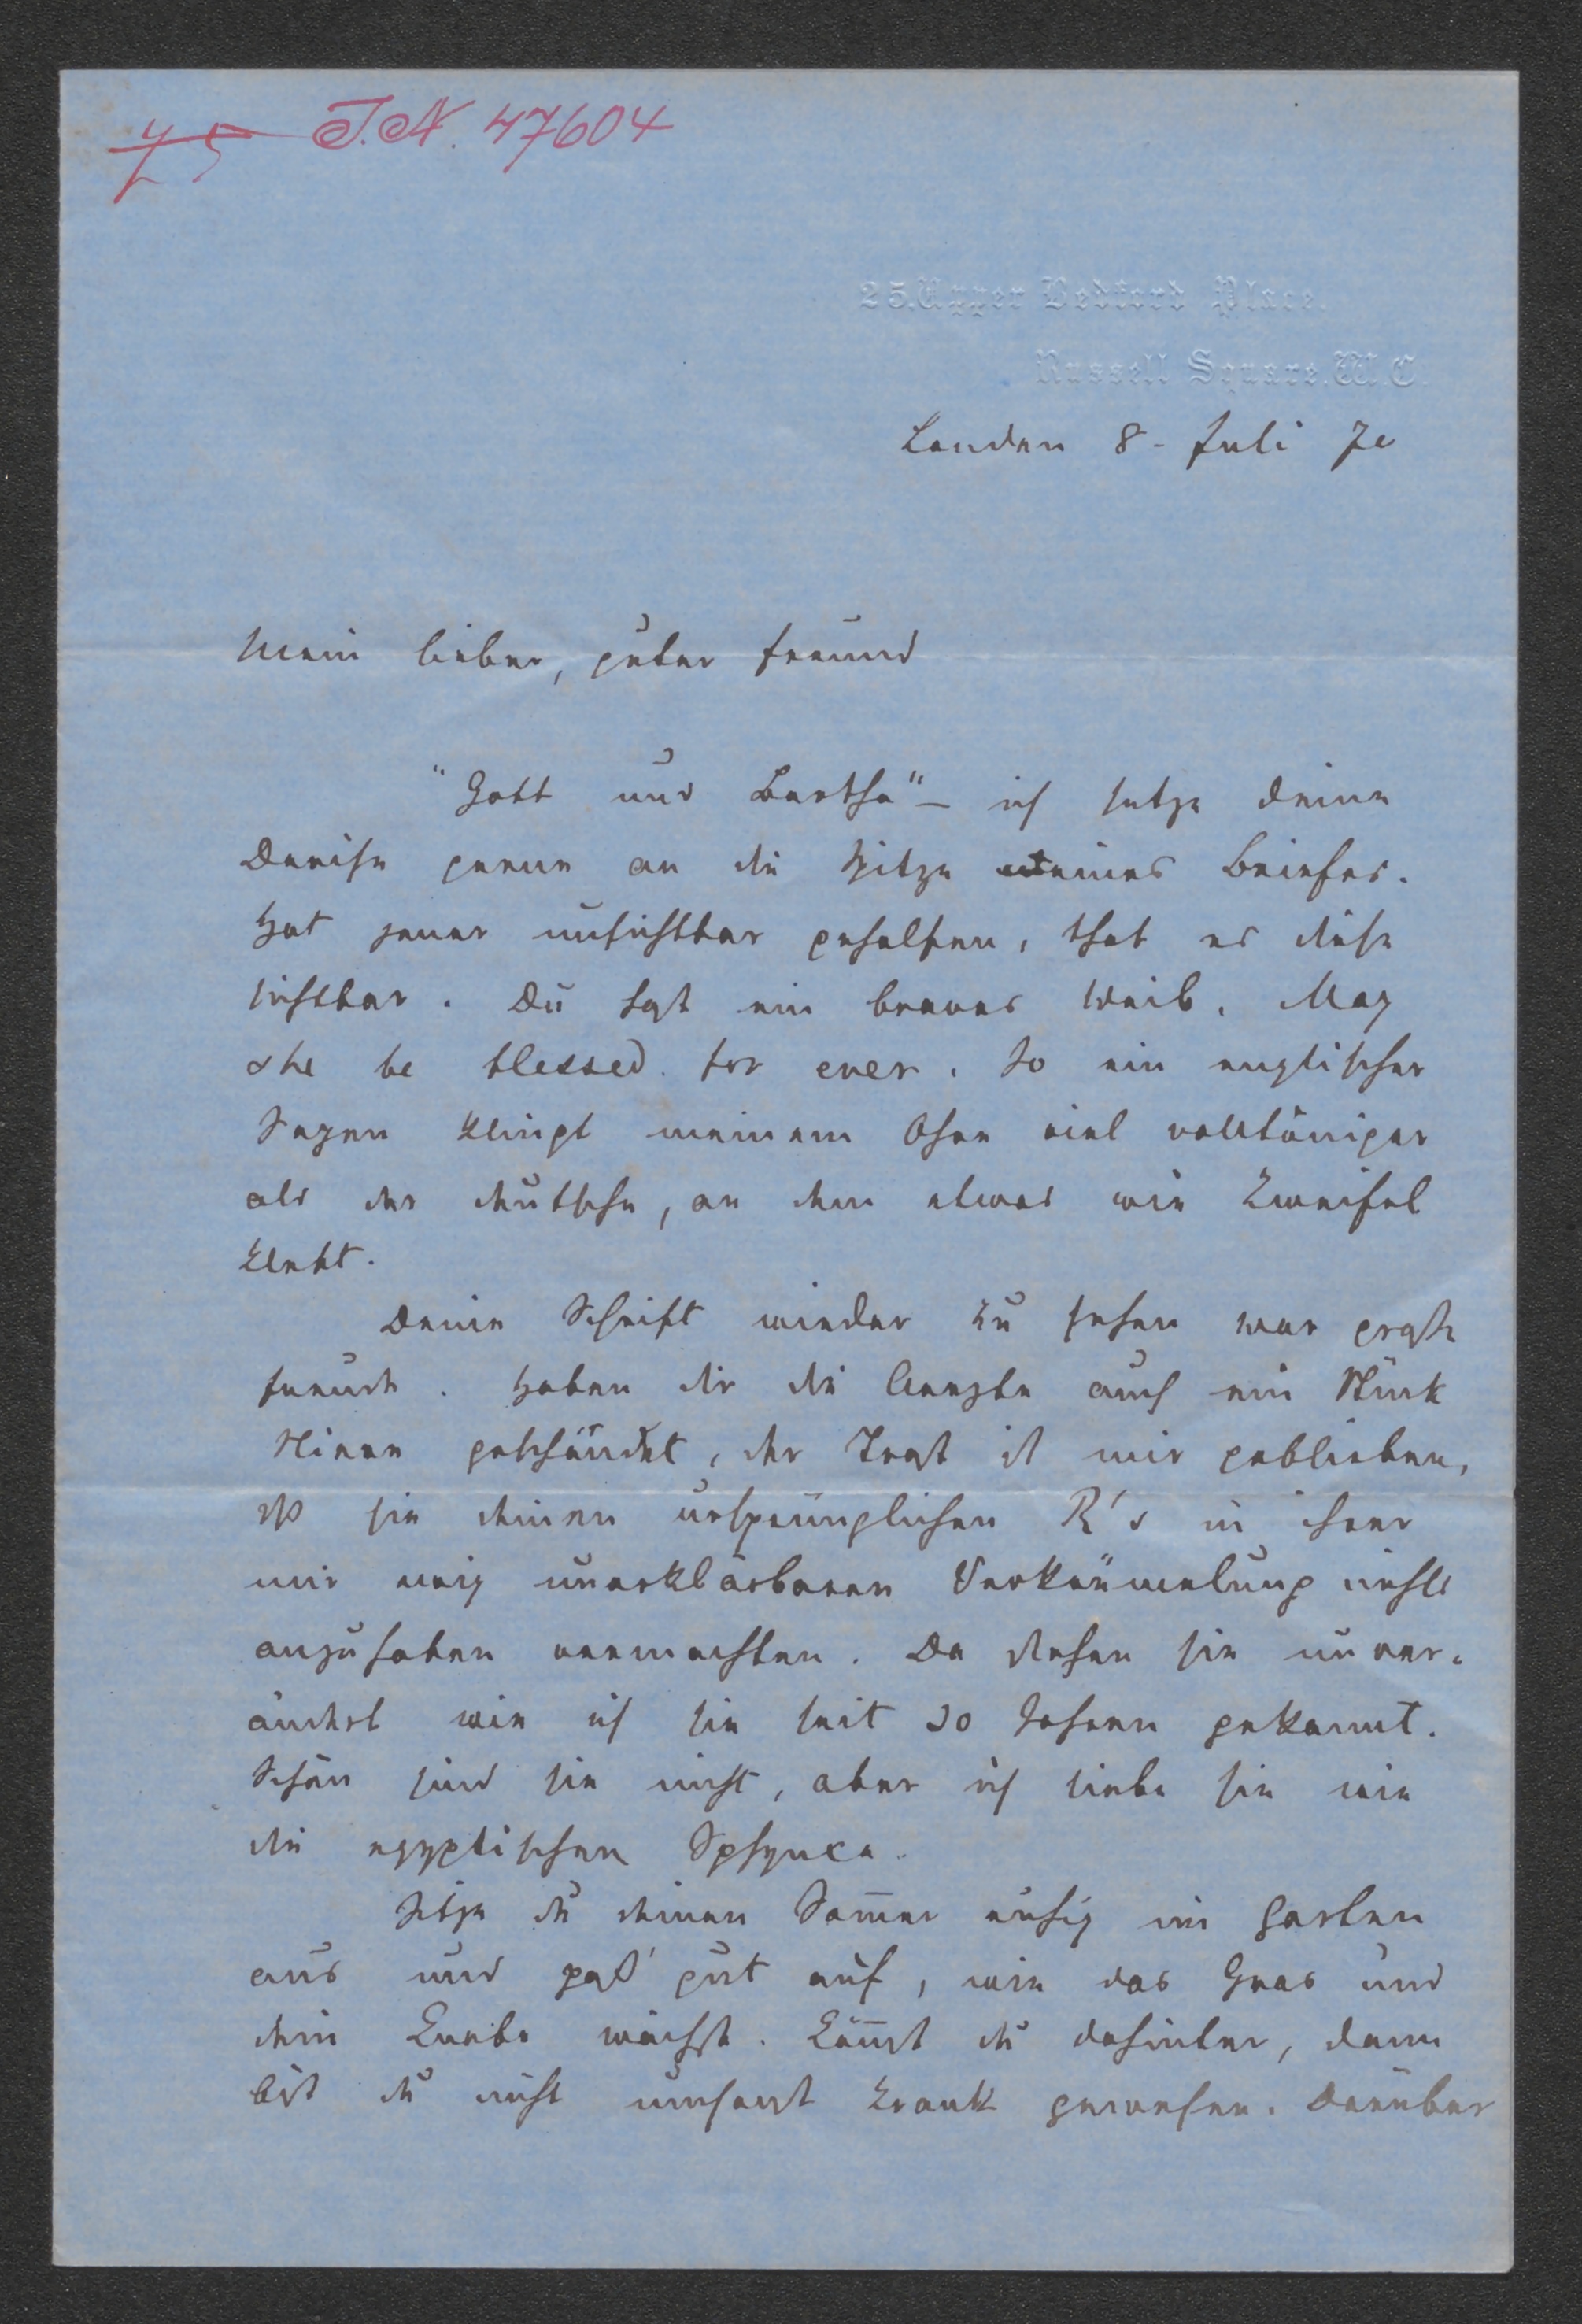 I.N. 47604
25. Upper Bedford Place.
Russell Square. W.C.
London 8 - Juli 70
Mein lieber, guter Freund
"Gott und Bertha" – ich setze deine
Devise gerne an die Spitze meines Briefes.
Hat jener unsichtbar geholfen, that es diese
sichtbar. Du hast ein braves Weib. May
she be blessed for ever. So ein englischer
Segen klingt meinem Ohre viel volltöniger
als der deutsche, an dem etwas wie Zweifel
klebt.
Deine Schrift wieder zu sehen war große
Freude. Haben dir die Aerzte auch ein Stück
Niere, der Trost ist mir geblieben,
daß sie deinen ursprünglichen R's in ihrer
mir ewig unerklärbaren Verkrümelung nichts
anzuhaben vermochten. Da stehen sie unver-
ändert wie ich sie seit 20 Jahren gekannt.
Schön sind sie nicht, aber ich liebe sie wie
die egyptischen Sphynxe.
Sitze du deinen Som̅er ruhig im Garten
aus und paß' gut auf, wie das Gras und
dein Knabe wächst. Kom̅st du dahinter, dann
bist du nicht umsonst krank gewesen. Darüber